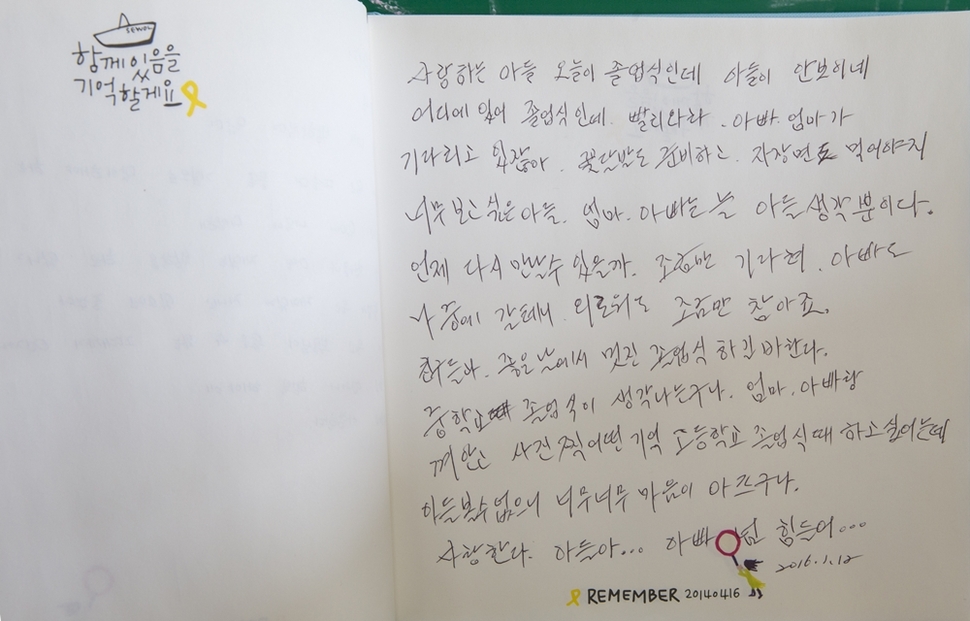 SEWOL
함께 있음을
기억할게요
사랑하는 아들 오늘이 졸업식인데 아들이 안보이네
어디에 있어 졸업식인데. 빨리와라. 아빠. 엄마가
기다리고 있잖아. 꽃다발도 준비하고. 자장면도 먹어야지
너무 보고싶은 아들. 엄마. 아빠는 늘 아들 생각뿐이다.
언제 다시 만날수 있을까. 조금만 기다려. 아빠도
나중에 갈테니. 외로워도 조금만 참아죠.
친구들과. 좋은날에서 멋진 졸업식 하길 바란다.
중학교때 졸업식이 생각나는구나. 엄마. 아빠랑
껴안고 사진찍어던 기억 고등학교 졸업식때 하고싶어는데
아들볼수 없으니 너무너무 마음이 아프구나.
사랑한다. 아들아... 아빠 넘 힘들어...
2016.1.12
REMEMBER 20140416